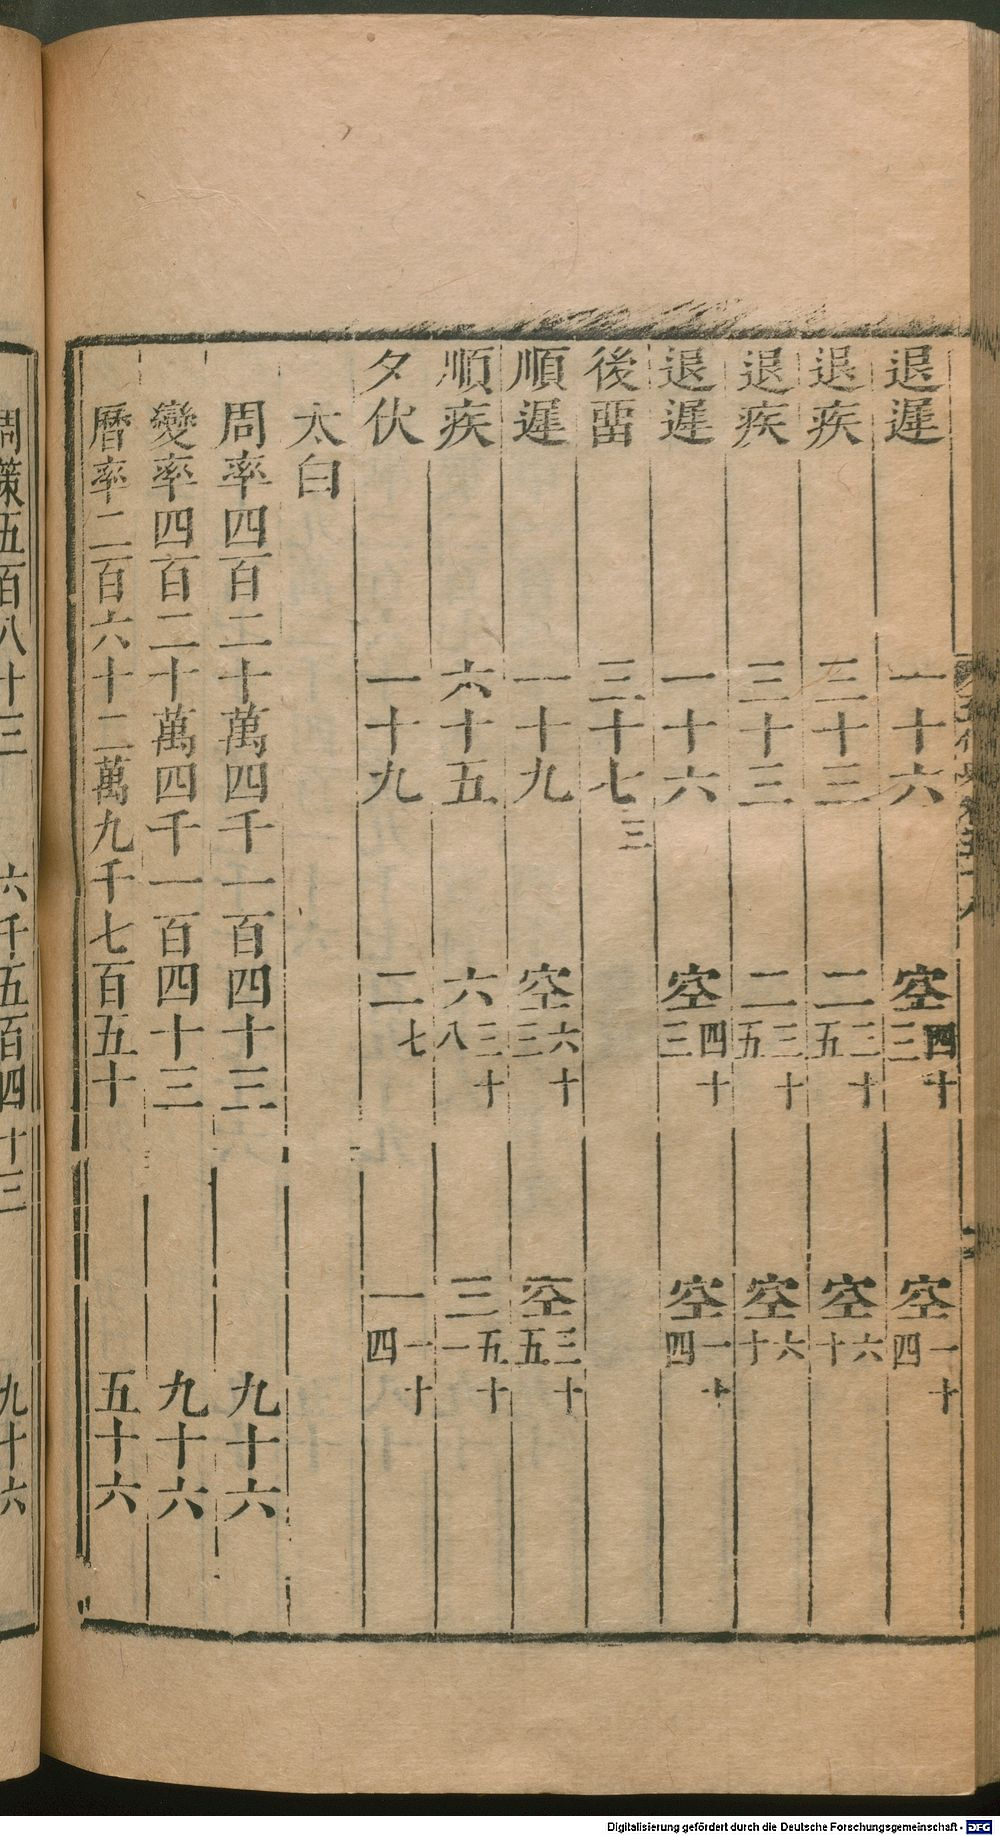 退遲 一十六 空四十三 空一十四
退疾 三十三 二二十五 空六十
退疾 三十三 二三十五 空六十
退遲 一十六 空四十三 空一十四
後畱 三十七三
順遲 一十九 空六十三 空三十五
順疾 六十五 六三十八 三五十一
夕伏 一十九 二七 一一十四
太白
周率四百二十萬四千一百四十三 九十六
變率四百二十萬四千一百四十三 九十六
曆率二百六十二萬九千七百五十 五十六
周策五百八十三 六千五百四十三 九十六
Digitalisierung gefördert durch die Deutsche Forschungsgemeinschaft - DFG